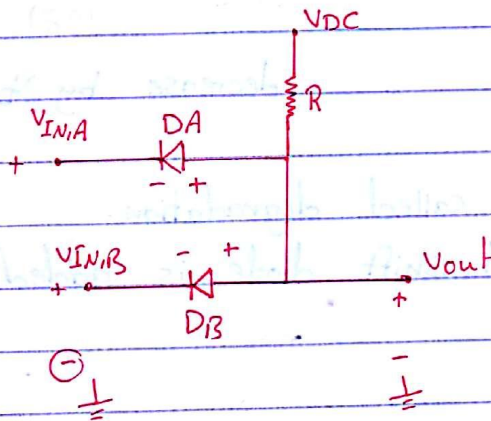 VDC
R
VIN,A
DA
+
- +
VIN,B
- +
+
Vout
+
DB
-
-